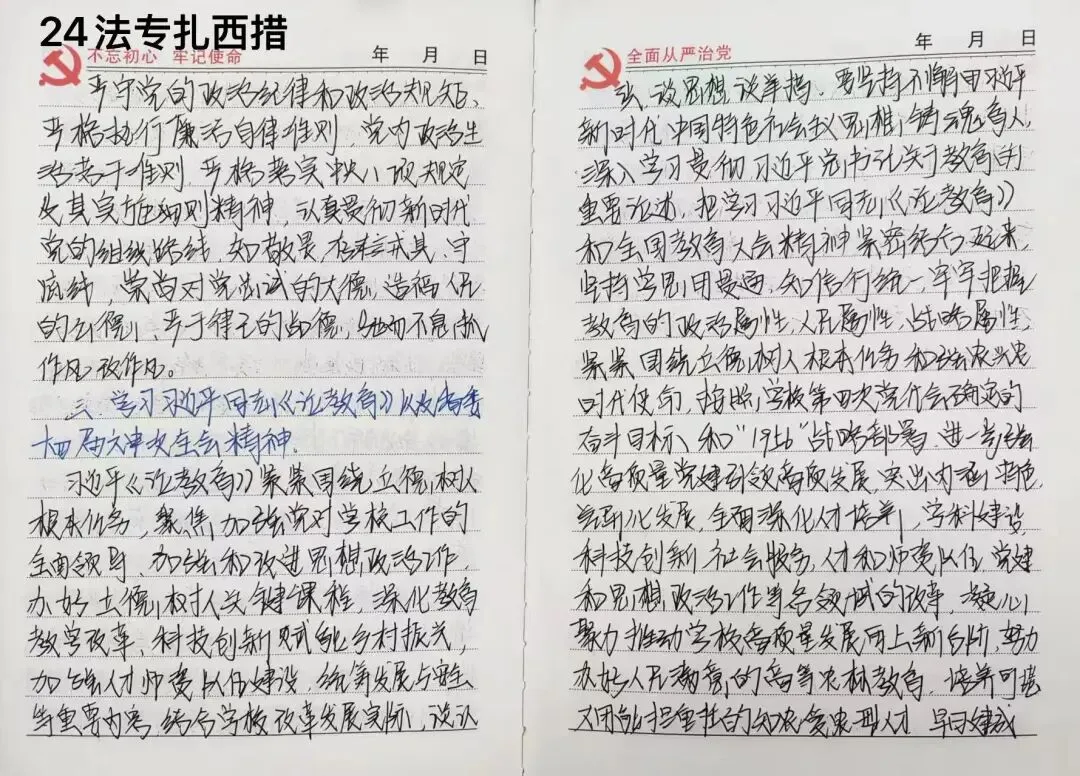 24法专扎西措
不忘初心 牢记使命
年 月 日
严守党的政治纪律和政治规矩、
严格执行廉洁自律准则、党内政治生
活若干准则,严格落实中央八项规定
及其实施细则精神,认真贯彻新时代
党的组织路线,知敬畏、存戒惧、守
底线,崇尚对党忠诚的大德,造福人民
的公德、严于律己的品德,驰而不息抓
作风改作风。
三、学习习近平同志《论教育》以及省委
十四届六次全会精神。
习近平《论教育》紧紧围绕立德树人
根本任务,聚焦加强党对学校工作的
全面领导、加强和改进思想政治工作、
办好立德树人关键课程,深化教育
教学改革、科技创新赋能乡村振兴,
加强人才师资队伍建设,统筹发展与安全
等重要内容,结合学校改革发展实际,谈认
全面从严治党
年 月 日
识、谈思想、谈举措。要坚持不懈用习近平
新时代中国特色社会主义思想铸魂育人,
深入学习贯彻习近平总书记关于教育的
重要论述,把学习习近平同志《论教育》
和全国教育大会精神紧密结合起来,
坚持学思用贯通、知信行统一,牢牢把握
教育的政治属性、人民属性、战略属性,
紧紧围绕立德树人根本任务和强农兴农
时代使命,按照学校第四次党代会确定的
奋斗目标、和“1956”战略部署,进一步强
化高质量党建引领高质发展,突出内涵、特色、
差异化发展,全面深化人才培养、学科建设、
科技创新、社会服务、人才和师资队伍、党建
和思想政治工作等各领域的改革,凝心
聚力推动学校高质量发展再上新台阶,努力
办好人民满意的高等农林教育,培养可堪
大用能担重任的知农爱农型人才,早日建成